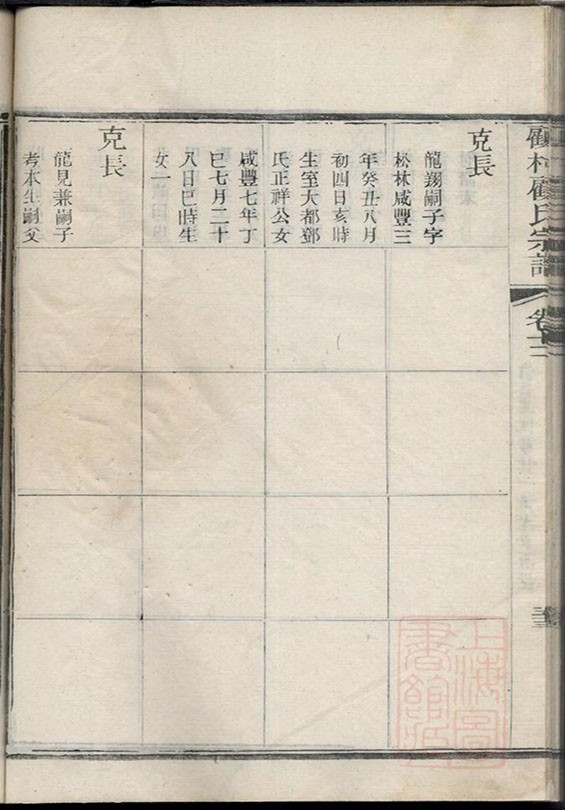 顧村顧氏宗譜
卷十二
克長
龍翔嗣子字
松林咸豐三
年癸丑八月
初四日亥時
生室大都鄧
氏正祥公女
咸豐七年丁
巳七月二十
八日巳時生
女一
克長
龍見兼嗣子
考本生嗣父
上海圖
書館藏